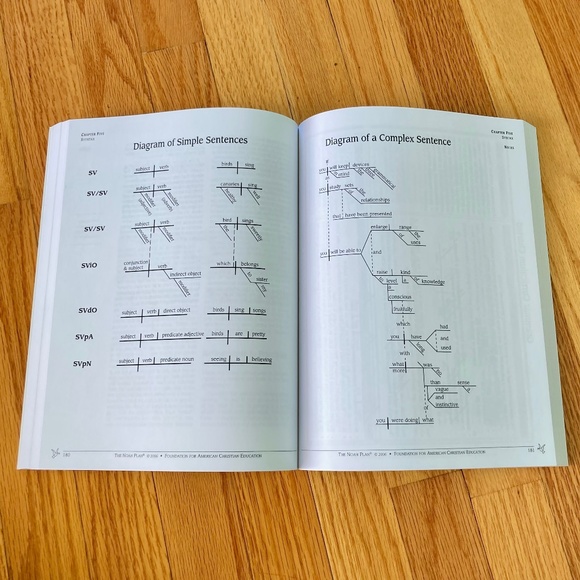 CHAPTER FIVE
Diagram of Simple Sentences
SV
subject verb
birds sing
SV/SV
subject verb
canaries sing
SV/SV
subject verb
bird sings
SViO
conjunction
& subject verb
indirect object
modifier
which belongs
to
sister
my
SVdO
subject verb direct object
birds sing songs
SVpA
subject verb predicate adjective
birds are pretty
SVpN
subject verb predicate noun
seeing is believing
180
THE NOAH PLAN® © 2006 • FOUNDATION FOR AMERICAN CHRISTIAN EDUCATION
CHAPTER FIVE
Diagram of a Complex Sentence
you will keep devices
in mind
you study sets
of
the
relationships
that have been presented
enlarge range
the
of
uses
you will be able to
and
raise kind
to level
a
of knowledge
conscious
fruitfully
which
you have
had
and
used
long
with
what was
more
than sense
a
vague
and
instinctive
of
you were doing what
THE NOAH PLAN® © 2006 • FOUNDATION FOR AMERICAN CHRISTIAN EDUCATION
181